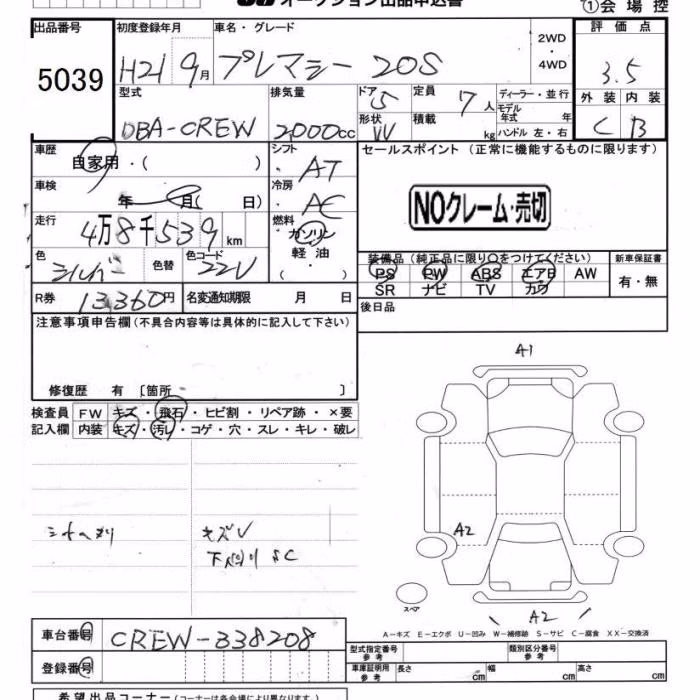 オークション出品申込書
①会場控
出品番号 初度登録年月 車名・グレード 2WD・4WD 評価点
5039 H21 9月 プレマシー 20S 3.5
型式 排気量 ドア 5 定員 7人 ディーラー・並行 外装 内装
DBA-CREW 2000cc 形状 W 積載 kg モデル年式 年 ハンドル 左・右 C B
車歴 自家用・( ) シフト AT セールスポイント (正常に機能するものに限ります)
車検 年 月( 日) 冷房 AC NOクレーム・売切
走行 4万8千539km 燃料 ガソリン・軽油・( )
色 シルバー 色替 色コード 22V 装備品 (純正品に限り○をつけてください) 新車保証書
PS PW ABS エアB AW 有・無
SR ナビ TV カワ
R券 13360円 名変通知期限 月 日 後日品
注意事項申告欄 (不具合内容等は具体的に記入して下さい)
A1
修復歴 有 [箇所 ]
検査員 FW キズ・飛石・ヒビ割・リペア跡・×要
記入欄 内装 キズ・汚レ・コゲ・穴・スレ・キレ・破レ
A2
キズV
スペア
A2
A-キズ E-エクボ U-凹み W-補修跡 S-サビ C-腐食 XX-交換済
車台番号 CREW-338208 型式指定番号 参考 類別区分番号 参考
登録番号 車庫証明用 参考 長さ cm 幅 cm 高さ cm
希望出品コーナー (コーナーは各会場により異なります)